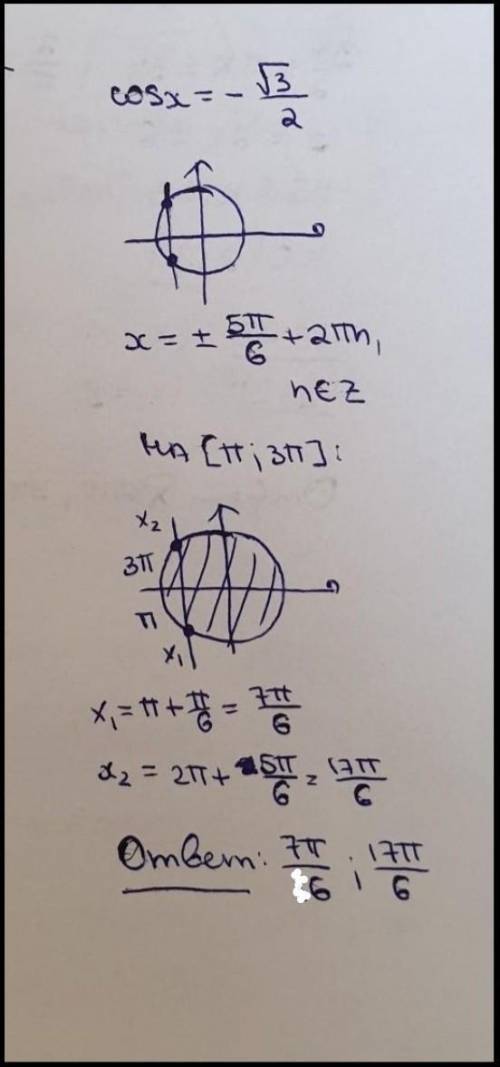 cosx = - √3/2
x = ± 5π/6 + 2πn,
n∈Z
НА [π; 3π]:
x₂
3π
π
x₁
x₁ = π + π/6 = 7π/6
x₂ = 2π + 5π/6 = 17π/6
Ответ: 7π/6 ; 17π/6